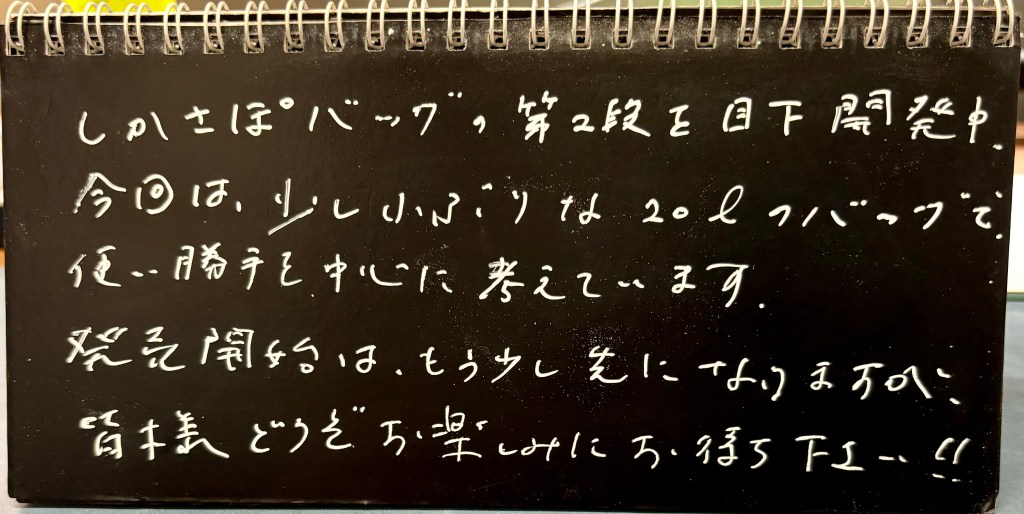 しかさぽバッグの第2段を目下開発中.
今回は、少し小ぶりな20lのバッグで.
使い勝手を中心に考えています.
発売開始は、もう少し先になりますが、
皆様どうぞお楽しみにお待ち下さい!!